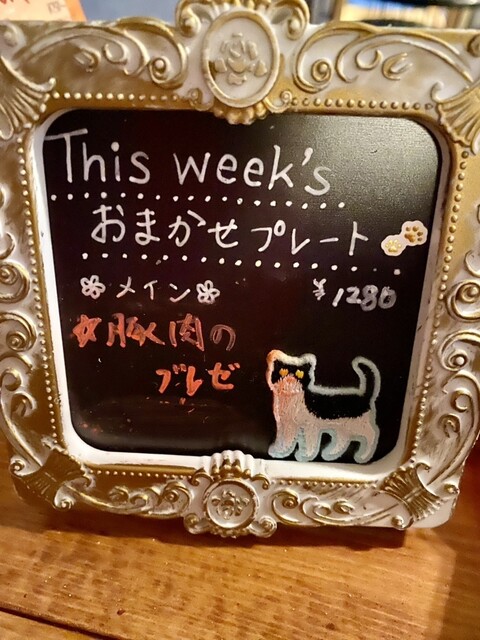 This week's
おまかせプレート
メイン ¥1280
☆豚肉の
ブレゼ